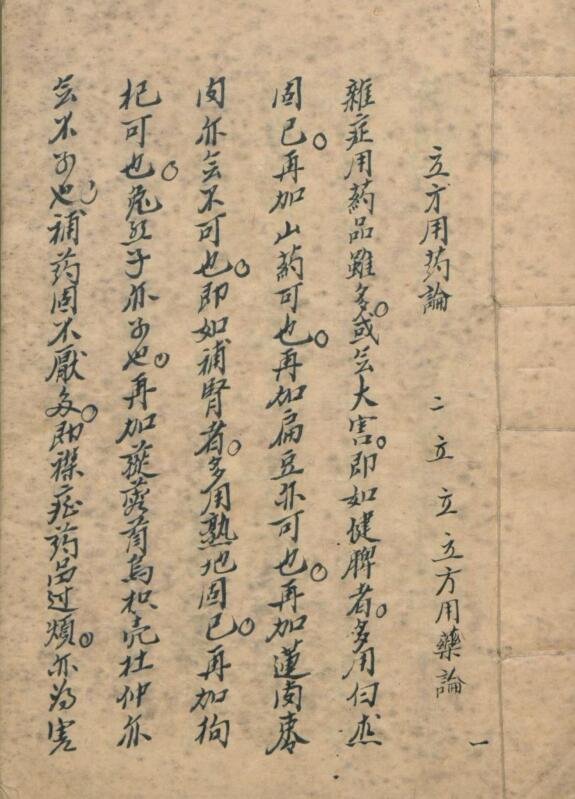 立方用药論　二　立　立　立方用藥論　一
雜症用藥品雖多。或无大害。即如健脾者。多用白朮
固已。再加山藥可也。再加扁豆亦可也。再加蓮肉麥
肉亦无不可也。即如補腎者。多用熟地固已。再加枸
杞可也。兔丝子亦可也。再加蓯蓉首烏枳壳杜仲亦
无不可也。補药固不厭多。即襍症药品过煩。亦为害